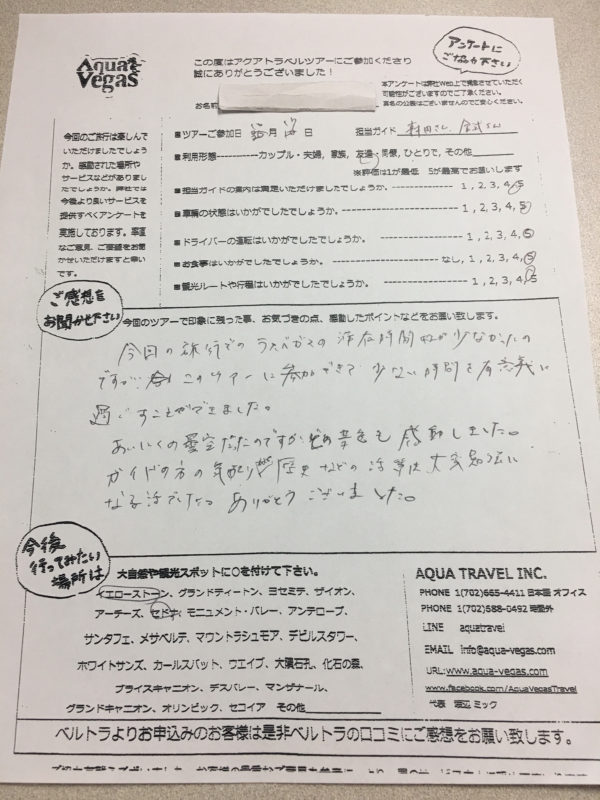 Aqua Vegas
この度はアクアトラベルツアーにご参加くださり
誠にありがとうございました！
アンケートに
ご協力下さい
本アンケートは弊社Web上で掲載させていただく
可能性がございますのでご了承ください。
実名の公表はございませんのでご安心ください。
お名前
今回のご旅行は楽しんで
いただけましたでしょう
か。感動された場所や
サービスなどがありまし
たでしょうか。弊社では
今後より良いサービスを
提供すべくアンケートを
実施しております。率直
なご意見、ご要望をお聞
かせいただけますと幸い
です。
■ツアーご参加日 月 日 担当ガイド
■利用形態------------カップル・夫婦, 家族, 友達, 同僚, ひとりで, その他
※評価は1が最低 5が最高でお願いします
■担当ガイドの案内は満足いただけましたでしょうか。 1, 2, 3, 4, 5
■車輌の状態はいかがでしたでしょうか。 1, 2, 3, 4, 5
■ドライバーの運転はいかがでしたでしょうか。 1, 2, 3, 4, 5
■お食事はいかがでしたでしょうか。 なし, 1, 2, 3, 4, 5
■観光ルートや行程はいかがでしたでしょうか。 1, 2, 3, 4, 5
ご感想を
お聞かせ下さい
今回のツアーで印象に残った事、お気づきの点、感動したポイントなどをお願い致します。
今回の旅行でのラスベガスの滞在時間が少なかったの
ですが このツアーに参加できて少ない時間を有意義に
過ごすことができました。
あいにくの曇空だったのですがどの景色も感動しました。
ガイドの方の 歴史などの話等は大変勉強に
なる話でした。ありがとうございました。
今後
行ってみたい
場所は
大自然や観光スポットに○を付けて下さい。
イエローストーン、グランドティートン、ヨセミテ、ザイオン、
アーチーズ、セドナ、モニュメント・バレー、アンテロープ、
サンタフェ、メサベルデ、マウントラシュモア、デビルスタワー、
ホワイトサンズ、カールスバット、ウエイブ、大隕石孔、化石の森、
ブライスキャニオン、デスバレー、マンザナール、
グランドキャニオン、オリンピック、セコイア その他
AQUA TRAVEL INC.
PHONE 1(702)665-4411 日本語 オフィス
PHONE 1(702)688-0492 時間外
LINE aquatravel
EMAIL info@aqua-vegas.com
URL:www.aqua-vegas.com
www.facebook.com/AquaVegasTravel
代表 渡辺 ミック
ベルトラよりお申込みのお客様は是非ベルトラの口コミにご感想をお願い致します。